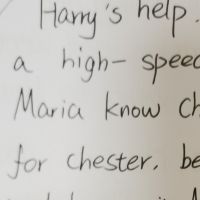 Harry's help.
a high-speed
Maria know Ch
for chester. be